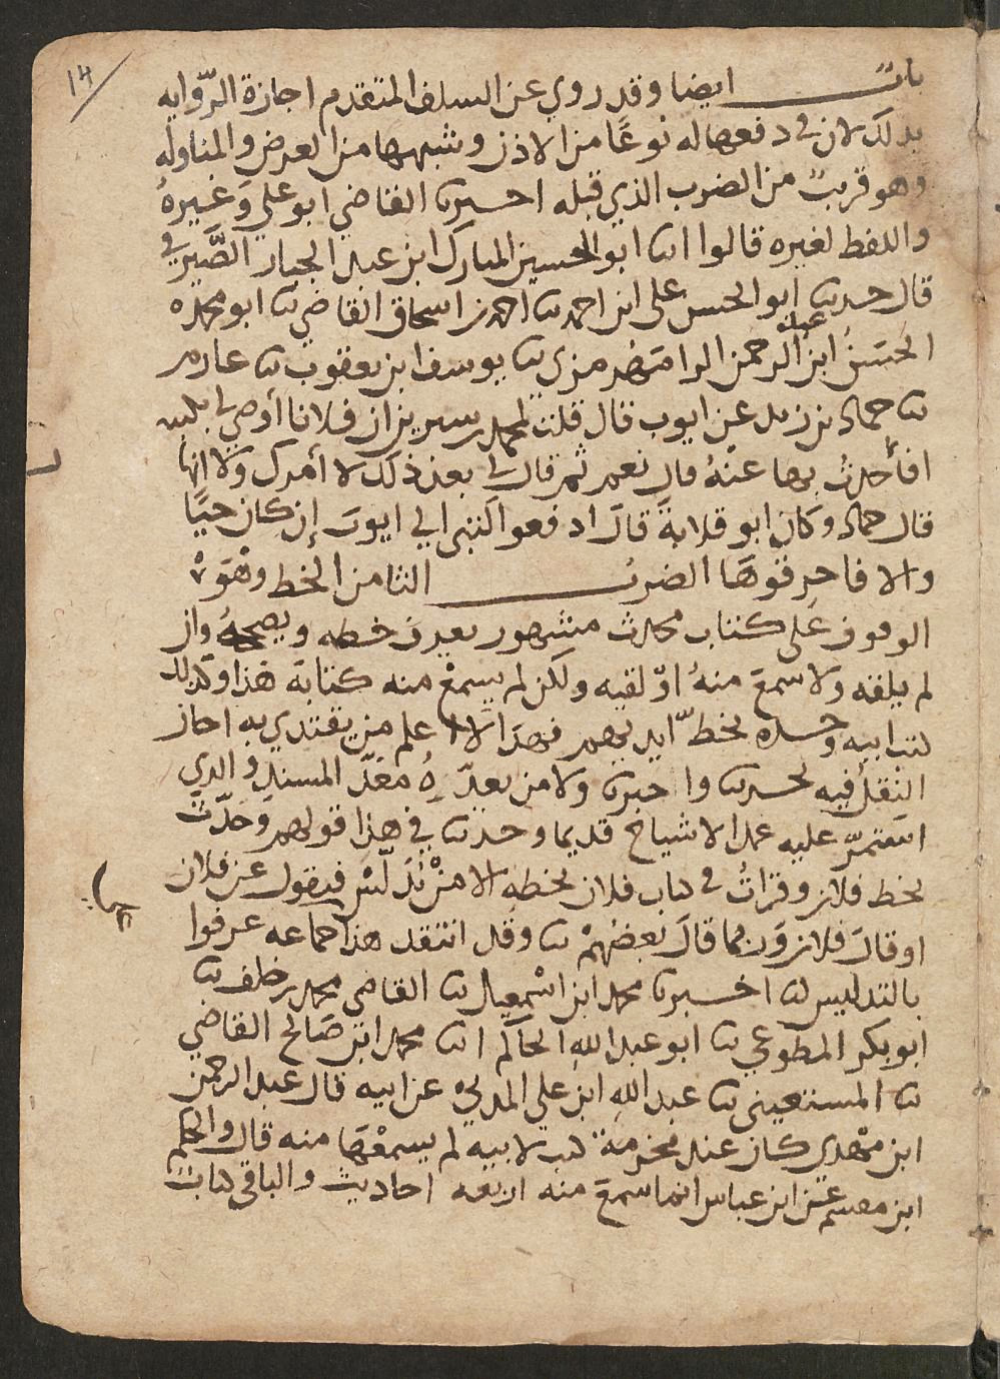 ١٤
باب ايضا وقد روي عن السلف المتقدم اجازة الرّوايه
بدلك لان في دفعها له نوعًا من الاذن وشبهها من العرض والمناوله
وهو قريبٌ من الضرب الذي قبله اخبرنا القاضي ابو علي وَغيرهُ
واللفظ لغيره قالوا انا ابو الحسين المبارك ابن عبد الجبار الصَّيرفي
قال حدثنا ابو الحسن على ابن احمد نا احمد بن اسحاق القاضي نا ابو محمد
الحسَنُ ابن عبد الرحمن الرامَهُرمزي نا يوسف ابن يعقوب نا عارم
نا حماد بن زيد عن ايوب قال قلت لمحمد بن سيرين ان فلانا أوصى لي بكتبه
افأحدثُ بها عنهُ قال نعم ثم قال لي بعد ذلك لا أمرك ولا انهاك
قال حماد وكان ابو قلابةَ قالَ ادفعوا كتبي الي ايوبَ إن كان حيًا
والا فاحرقوهَا الضربُ الثامن الخط وهْوَ
الوقوف عَلى كتاب محدث مشهور يعرفَ خطه ويصححهُ وان
لم يلقه ولا سمعَ منهُ اوْ لقيه ولكن لم يسمعْ منه كتابهَ هَذا وكذلك
كتب ابيه وجده بخطّ ايديهم فهذا لا اعلم من يقتدي به اجاز
النقلَ فيه بحدثنا واخبرنا ولا من يعدّهُ مَعَدّ المسندِ والذي
استمرّ عليه عمل الاشياخ قديما وحديثا في هذا قولهم وَحدّثَ
بخط فلان وقرَاتُ في كتاب فلان بخطهِ الا منْ يُدَلّسْ فيقول عن فلان
او قالَ فلان وَربما قالَ بعضهُمْ نا وقد انتقد هذا جماعه عرفوا
بالتدليس نا اخبرنا محمد ابن اسْمعيل نا القاضى محمد بن خلف نا
ابو بكر المطوعي نا ابو عبد الله الحاكم انا محمد ابن صَالح القاضي
نا المستعيني نا عبد الله ابن علي المديني عن ابيه قال عبد الرحمن
ابن مهْدي كان عند مخرمة كتب لابيه لم يسمعْهَا منه قال والحكم
ابن مقسم عن ابن عباس انما سمعَ منه اربعه احاديث والباقي كتابٌ